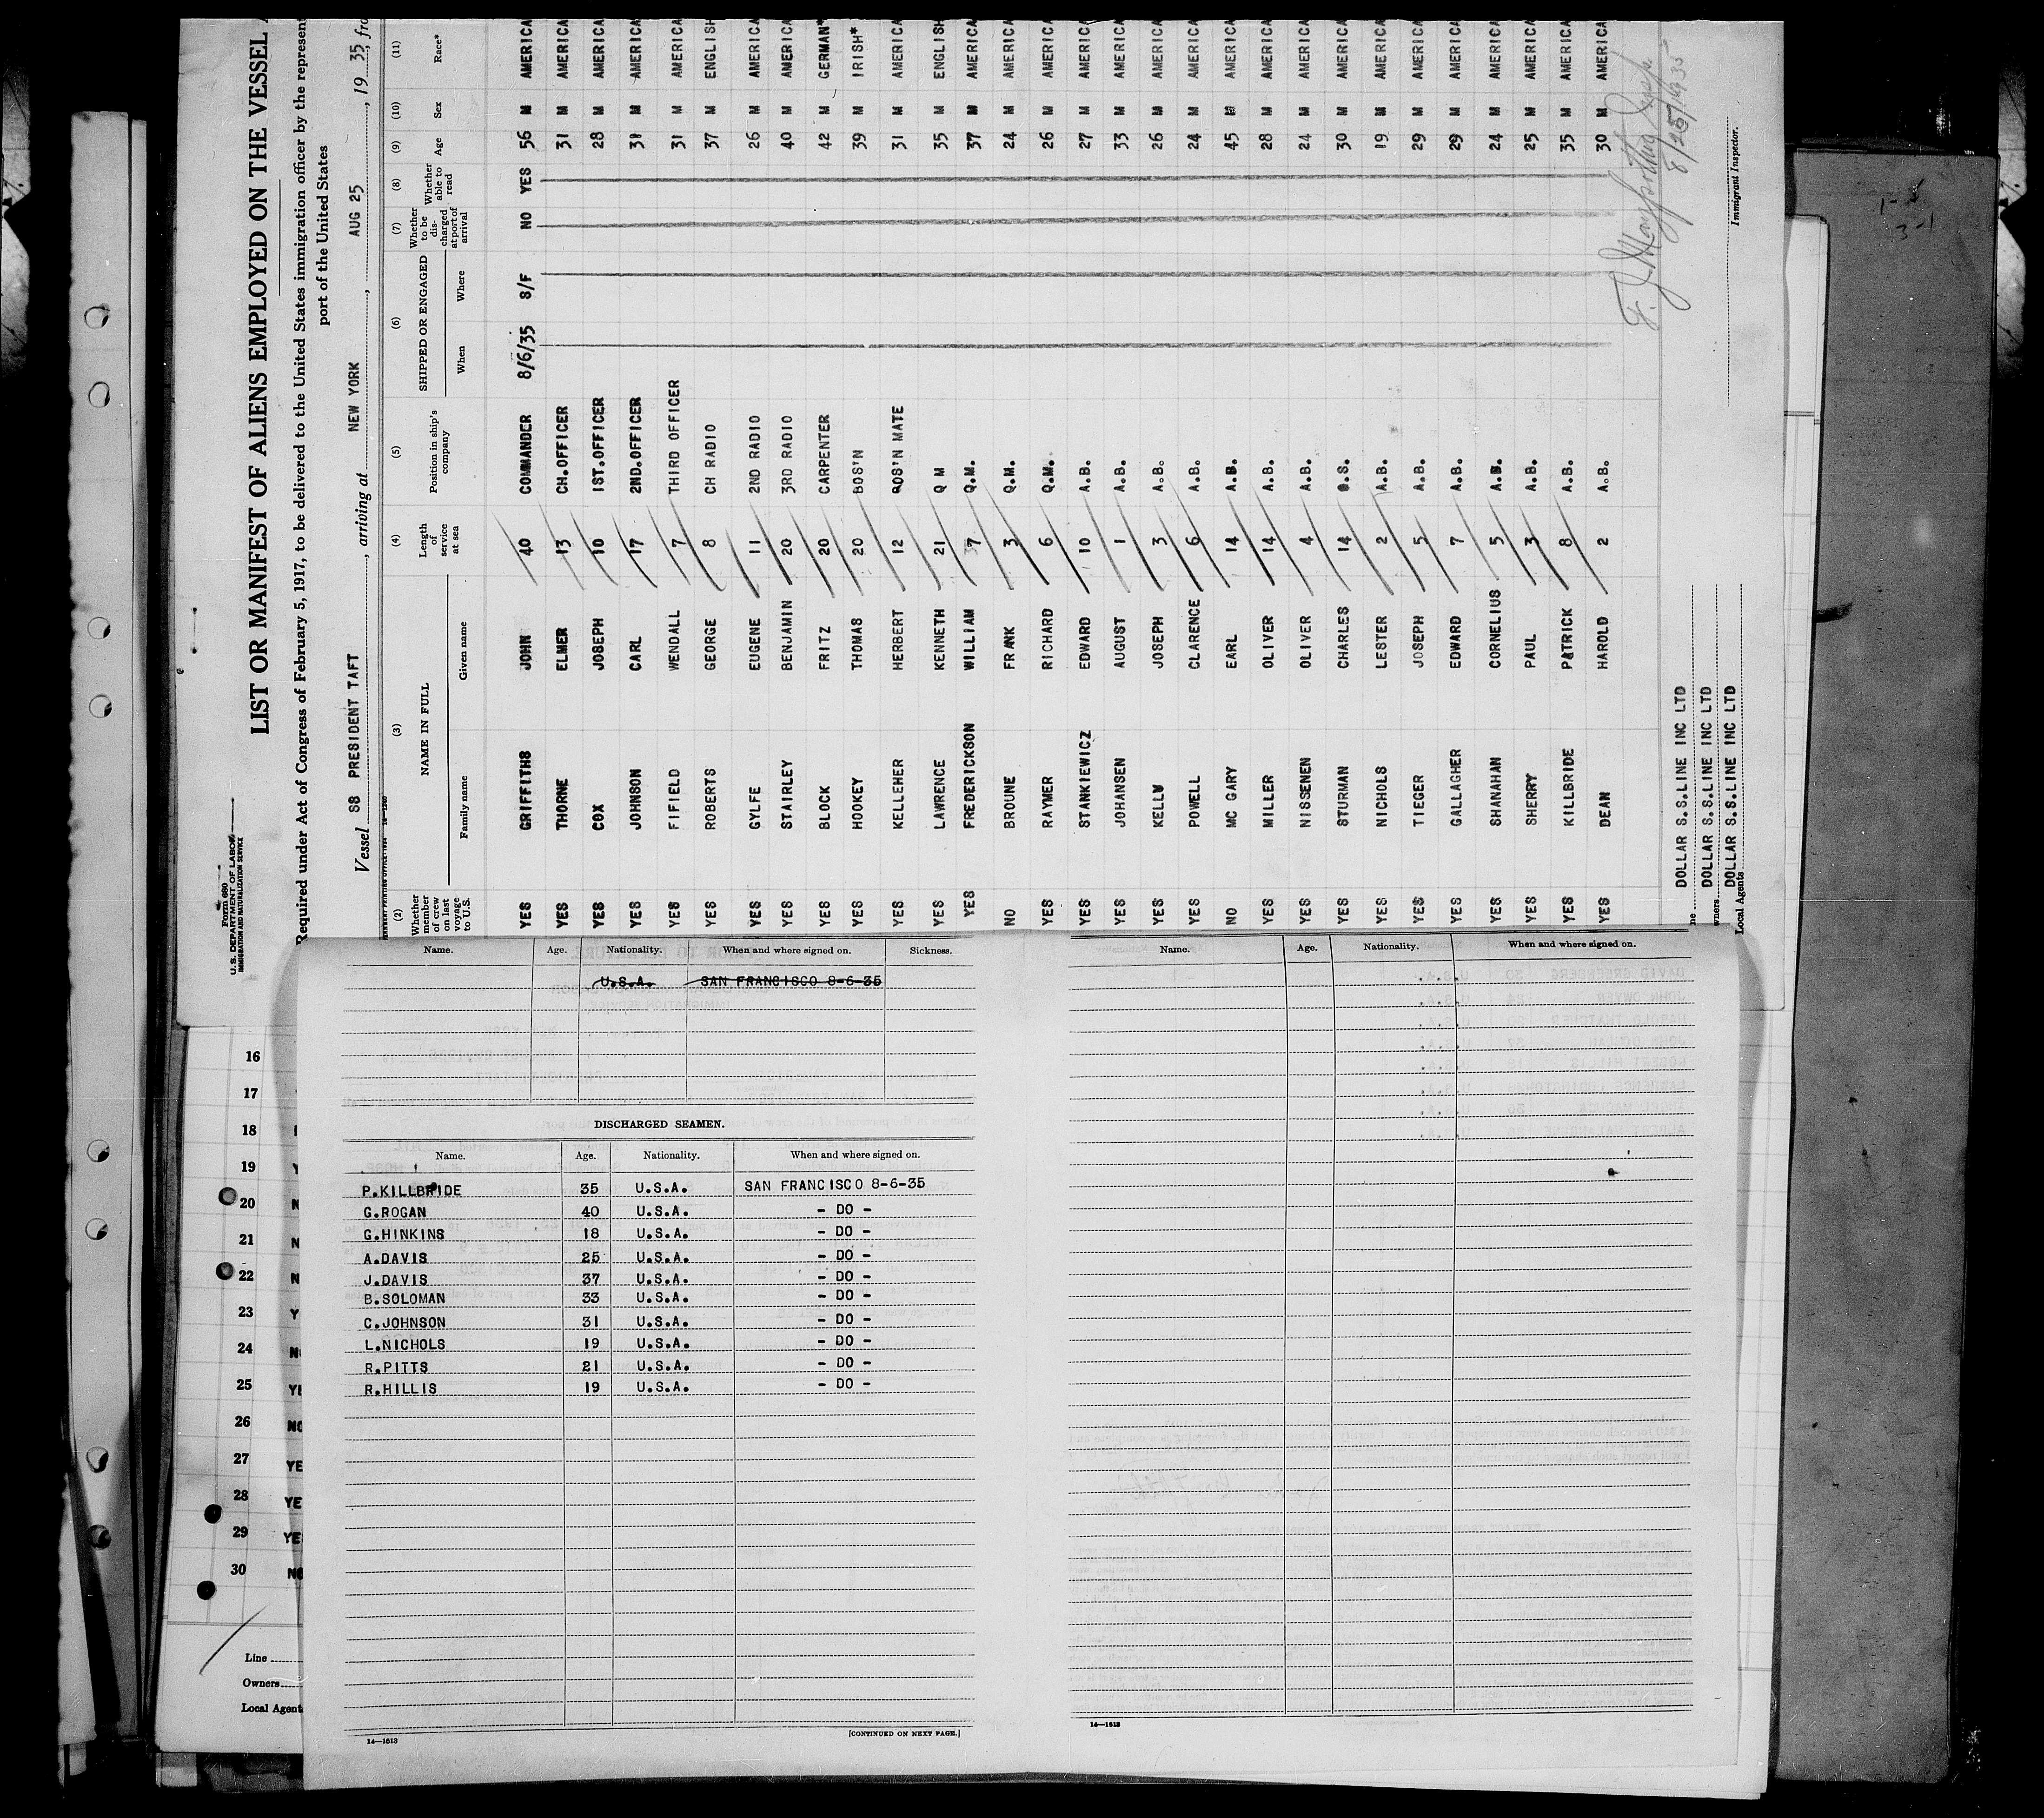 Form 680
U. S. DEPARTMENT OF LABOR
IMMIGRATION AND NATURALIZATION SERVICE
LIST OR MANIFEST OF ALIENS EMPLOYED ON THE VESSEL
Required under Act of Congress of February 5, 1917, to be delivered to the United States immigration officer by the represen
port of the United States
Vessel SS PRESIDENT TAFT, arriving at NEW YORK, AUG 25, 19 35, fro
(2) (3) (4) (5) (6) (7) (8) (9) (10) (11)
Whether member of crew on last voyage to U.S. NAME IN FULL Family name Given name Length of service at sea Position in ship's company SHIPPED OR ENGAGED When Where Whether to be discharged at port of arrival Whether able to read Age Sex Race*
YES GRIFFITHS JOHN 40 COMMANDER 8/6/35 S/F NO YES 56 M AMERICA
YES THORNE ELMER 13 CH.OFFICER 31 M AMERICA
YES COX JOSEPH 10 1ST.OFFICER 28 M AMERICA
YES JOHNSON CARL 17 2ND.OFFICER 31 M AMERICA
YES FIFIELD WENDALL 7 THIRD OFFICER 31 M AMERICA
YES ROBERTS GEORGE 8 CH RADIO 37 M ENGLISH
YES GYLFE EUGENE 11 2ND RADIO 26 M AMERICA
YES STAIRLEY BENJAMIN 20 3RD RADIO 40 M AMERICA
YES BLOCK FRITZ 20 CARPENTER 42 M GERMAN*
YES HOOKEY THOMAS 20 BOS'N 39 M IRISH*
YES KELLEHER HERBERT 12 BOS'N MATE 31 M AMERICA
YES LAWRENCE KENNETH 21 Q M 35 M ENGLISH
YES FREDERICKSON WILLIAM 7 Q.M. 37 M AMERICA
NO BROUNE FRANK 3 Q.M. 24 M AMERICA
YES RAYMER RICHARD 6 Q.M. 26 M AMERICA
YES STANKIEWICZ EDWARD 10 A.B. 27 M AMERICA
YES JOHANSEN AUGUST 1 A.B. 33 M AMERICA
YES KELLY JOSEPH 3 A.B. 26 M AMERICA
YES POWELL CLARENCE 6 A.B. 24 M AMERICA
NO MC GARY EARL 14 A.B. 45 M AMERICA
YES MILLER OLIVER 14 A.B. 28 M AMERICA
YES NISSENEN OLIVER 4 A.B. 24 M AMERICA
YES STURMAN CHARLES 14 O.S. 30 M AMERICA
YES NICHOLS LESTER 2 A.B. 19 M AMERICA
YES TIEGER JOSEPH 5 A.B. 29 M AMERICA
YES GALLAGHER EDWARD 7 A.B. 29 M AMERICA
YES SHANAHAN CORNELIUS 5 A.B. 24 M AMERICA
YES SHERRY PAUL 3 A.B. 25 M AMERICA
YES KILLBRIDE PATRICK 8 A.B. 35 M AMERICA
YES DEAN HAROLD 2 A.B. 30 M AMERICA
8/25/1935
Immigrant Inspector.
ne DOLLAR S.S.LINE INC LTD
wners DOLLAR S.S.LINE INC LTD
Local Agents DOLLAR S.S.LINE INC LTD
Name. Age. Nationality. When and where signed on. Sickness.
U.S.A. SAN FRANCISCO 8-6-35
DISCHARGED SEAMEN.
Name. Age. Nationality. When and where signed on.
P.KILLBRIDE 35 U.S.A. SAN FRANCISCO 8-6-35
G.ROGAN 40 U.S.A. - DO -
G.HINKINS 18 U.S.A. - DO -
A.DAVIS 25 U.S.A. - DO -
J.DAVIS 37 U.S.A. - DO -
B.SOLOMAN 33 U.S.A. - DO -
C.JOHNSON 31 U.S.A. - DO -
L.NICHOLS 19 U.S.A. - DO -
R.PITTS 21 U.S.A. - DO -
R.HILLIS 19 U.S.A. - DO -
14—1613
[CONTINUED ON NEXT PAGE.]
Name. Age. Nationality. When and where signed on.
14—1613
16
17
18
19 Y
20 N
21 N
22 N
23 Y
24 N
25 YE
26 NO
27 YE
28 YE
29 YE
30 NO
Line
Owners
Local Agent
1-
3-1